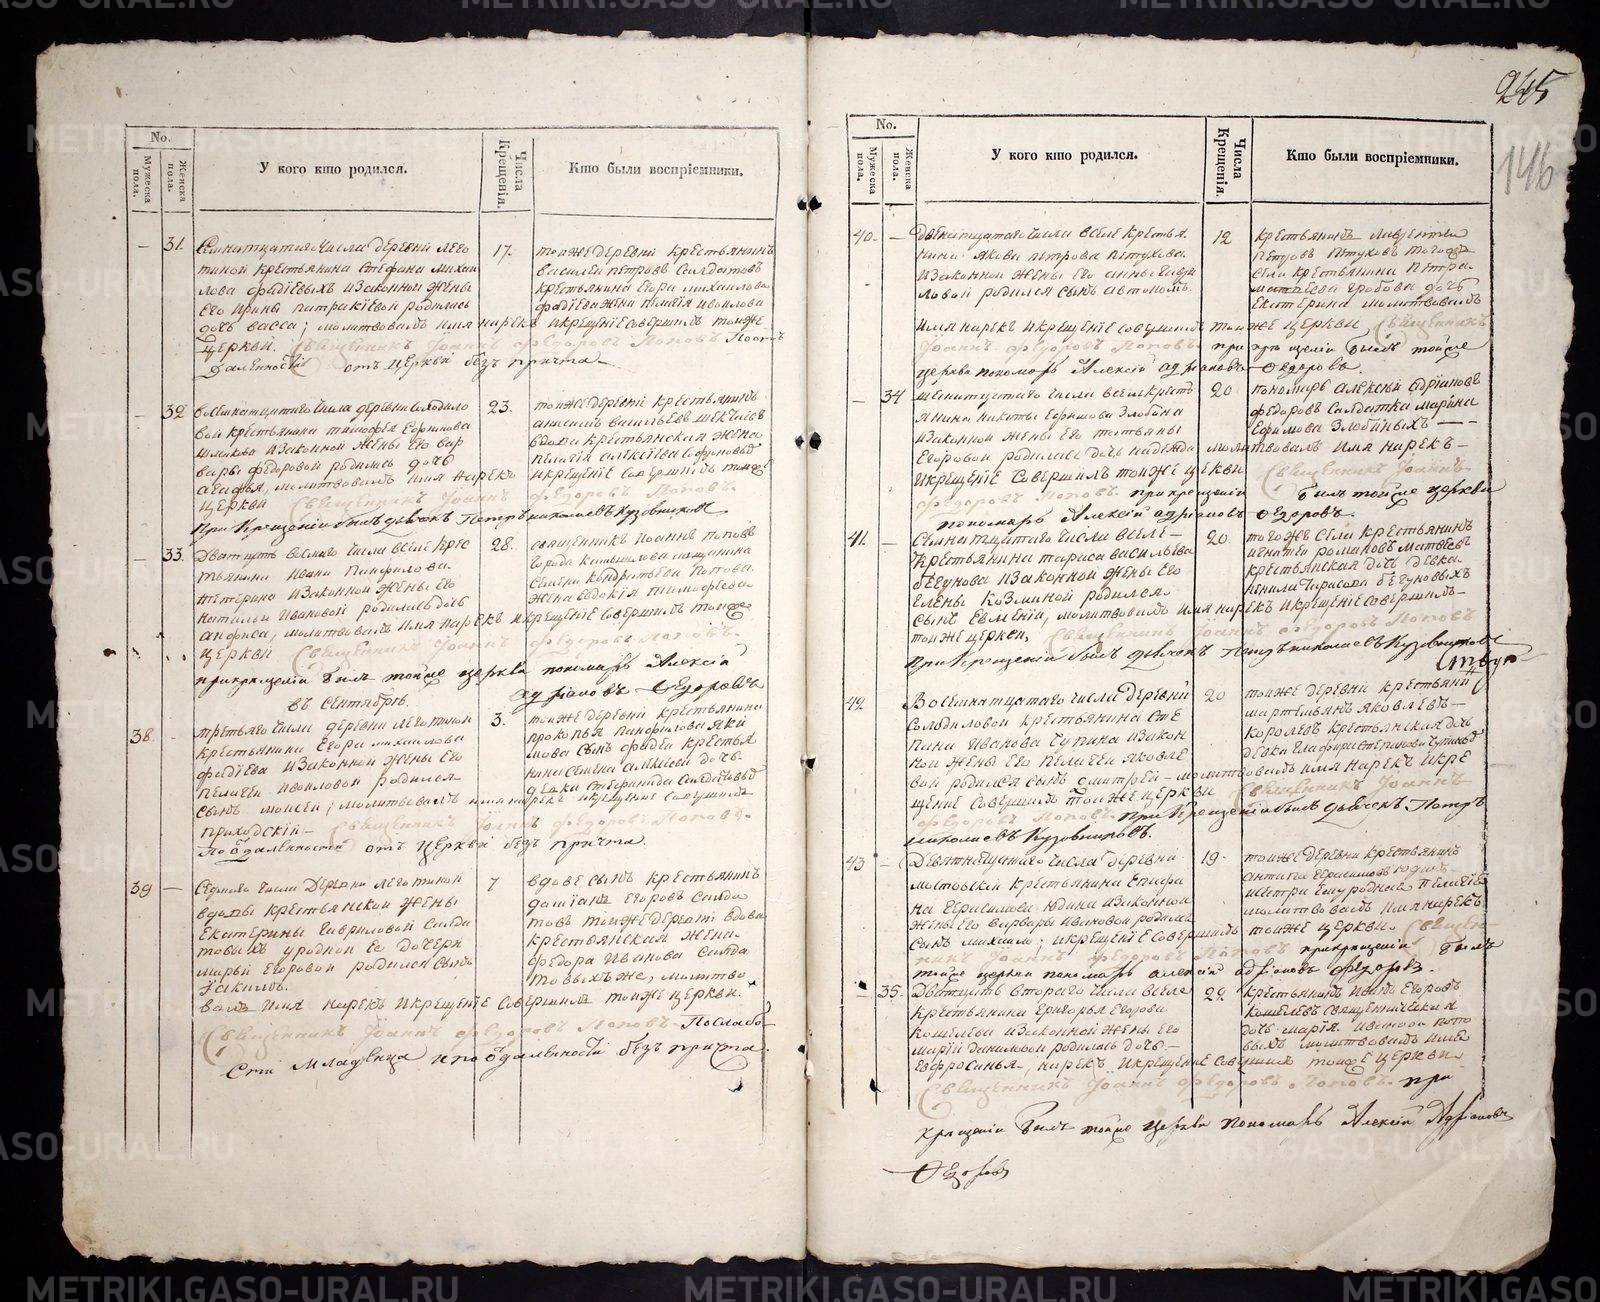 245
146
No.
Мужеска пола.
Женска пола.
У кого кто родился.
Числа Крещенія.
Кто были воспріемники.
31.
Семнатцатаго числа деревни Лего
тиной крестьянина Стефана Михаи
лова Фадїевыхъ изаконной жены
его Ирины Патракїевой родилась
дочь Васса; молитвовалъ имя нарекъ
церкви. Священникъ Іоаннъ Ѳедоровъ Поповъ. Поотъ
даленности отъ церкви безъ причта
17.
тоиже деревни крестьянинъ
Василеи Петровъ Салдатовъ
крестьянина Егора Михаилова
Фадїева жена Пелагїя Ивоилова
и крещенїе совершилъ тоиже
32
вои крестьянина Тимофея Ефимова
изаконной жены его Вар
вары Федоровой родилась дочь
Агафья, молитвовалъ имя нарекъ
церкви Священникъ Іоаннъ Ѳедоровъ Поповъ.
При крещеніи былъ дьячекъ Петръ Николаевъ Кузовниковъ
23.
тоиже деревни крестьянинъ
вдова крестьянская жена
и крещенїе совершилъ тоиже
33.
Дватцать осмаго числа вселе крес
тьянина Ивана Панфилова
Тетерина изаконной жены его
Наталїи Ивановой родилась дочь
Анфиса, молитвовалъ имя нарекъ и крещенїе совершилъ тоиже
церкви Священникъ Іоаннъ Ѳедоровъ Поповъ.
прикрещеніи былъ тойже церкви пономарь Алексій
Адріановъ Ѳедоровъ
28.
священникъ Иоаннъ Поповъ
города Камышлова мещанина
Семена Кондратьева Попова
жена Евдокїя Тимофеева
въ Сентябрѣ.
38
третьяго числа деревни Леготинои
крестьянина Егора Михаилова
Фадїева изаконной жены его
Пелагеи Ивоиловой родился
сынъ Моисеи; молитвовалъ имя нарекъ и крещенїе совершилъ
приходскїи Священникъ Іоаннъ Ѳедоровъ Поповъ.
По отдаленности отъ церкви безъ причта.
3.
тоиже деревни крестьянина
Прокопья Панфилова Яки
мова сынъ Фадеи крестья
нина Семена Алексеева дочь
девка Стефанида Салдатовыхъ
39
Седмаго числа деревни Леготиной
вдовы крестьянской жены
Екатерины Гавриловой Салда
товыхъ уродной ее дочери
Марьи Егоровой родился сынъ
Іакимъ.
валъ имя нарекъ и крещенїе совершилъ тоиже церкви.
Священникъ Іоаннъ Ѳедоровъ Поповъ. Послабо
сти младенца и по отдаленности безъ причта.
7
вдове сынъ крестьянинъ
Дамїанъ Егоровъ Салда
товъ тоиже деревни вдова
крестьянская жена
Федора Иванова Салда
товыхъ же, молитво
No.
Мужеска пола.
Женска пола.
У кого кто родился.
Числа Крещенія.
Кто были воспріемники.
40.
Двенатцатаго числа вселе крестья
нина Якова Петрова Петухова
изаконной жены его Анны Гаври
ловой родился сынъ Автономъ.
имя нарекъ и крещенїе совершилъ тоиже церкви, Священникъ
Іоаннъ Ѳедоровъ Поповъ. при крещеніи былъ тойже
церкви пономарь Алексій Адріановъ Ѳедоровъ.
12
Петровъ Петуховъ тогоже
села крестьянина Петра
Матвеева Гробова дочь
Екатерина молитвовалъ
34
янина Никиты Ефимова Злобина
изаконной жены его Татьяны
Егоровой родилась дочь Надежда молитвовалъ имя нарекъ
и крещенїе совершилъ тоиже церкви Священникъ Іоаннъ
Ѳедоровъ Поповъ. прикрещеніи былъ тойже церкви
пономарь Алексій Адріановъ Ѳедоровъ.
20
пономарь Алексѣй Адріановъ
Федоровъ салдатка Марина
Ефимова Злобиныхъ
41.
Семнатцатаго числа вселе
крестьянина Тараса Васильева
Бегунова изаконной жены его
Елены Козминой родился
сынъ Евменїй, молитвовалъ имя нарекъ и крещенїе совершилъ
тоиже церкви, Священникъ Іоаннъ Ѳедоровъ Поповъ
При крещеніи былъ дьячекъ Петръ Николаевъ Кузовниковъ
20
тогоже села крестьянинъ
Игнатеи Романовъ Матвеевъ
крестьянская дочь девка
Ненила Тарасова Бегуновыхъ
42.
Восемнатцатаго числа деревни
Солодиловой крестьянина Сте
пана Иванова Чупина изакон
ной жены его Пелагеи Яковле
вой родился сынъ Дмитреи молитвовалъ имя нарекъ и кре
щение совершилъ тоиже церкви Священникъ Іоаннъ
Ѳедоровъ Поповъ. При крещеніи былъ дьячекъ Петръ
Николаевъ Кузовниковъ.
20
тоиже деревни крестьянинъ
Мартемьянъ Яковлевъ
Королевъ крестьянская дочь
девка Глафира Степанова Чупиныхъ
43
Девятнатцатаго числа деревни
Мостовской крестьянина Епифа
на Герасимова Юдина изаконной
жены его Варвары Ивановой родился
сынъ Михаилъ; и крещенїе совершилъ тоиже церкви. Священ
никъ Іоаннъ Ѳедоровъ Поповъ прикрещеніи былъ
тойже церкви пономарь Алексій Адріановъ Ѳедоровъ.
19.
тоиже деревни крестьянинъ
молитвовалъ имя нарекъ
35.
Дватцать втораго числа вселе
крестьянина Григорья Егорова
Кошелева изаконной жены его
Марїи Даниловой родилась дочь
Евфросинья, нарекъ и крещенїе совершилъ тоиже церкви
Священникъ Іоаннъ Ѳедоровъ Поповъ. при
крещеніи былъ тойже церкви пономарь Алексій Адріановъ
Ѳедоровъ
22.
крестьянинъ Иванъ Егоровъ
Кошелевъ священническая
дочь Марїя Иванова Попо
выхъ молитвовалъ имя
METRIKI.GASO-URAL.RU